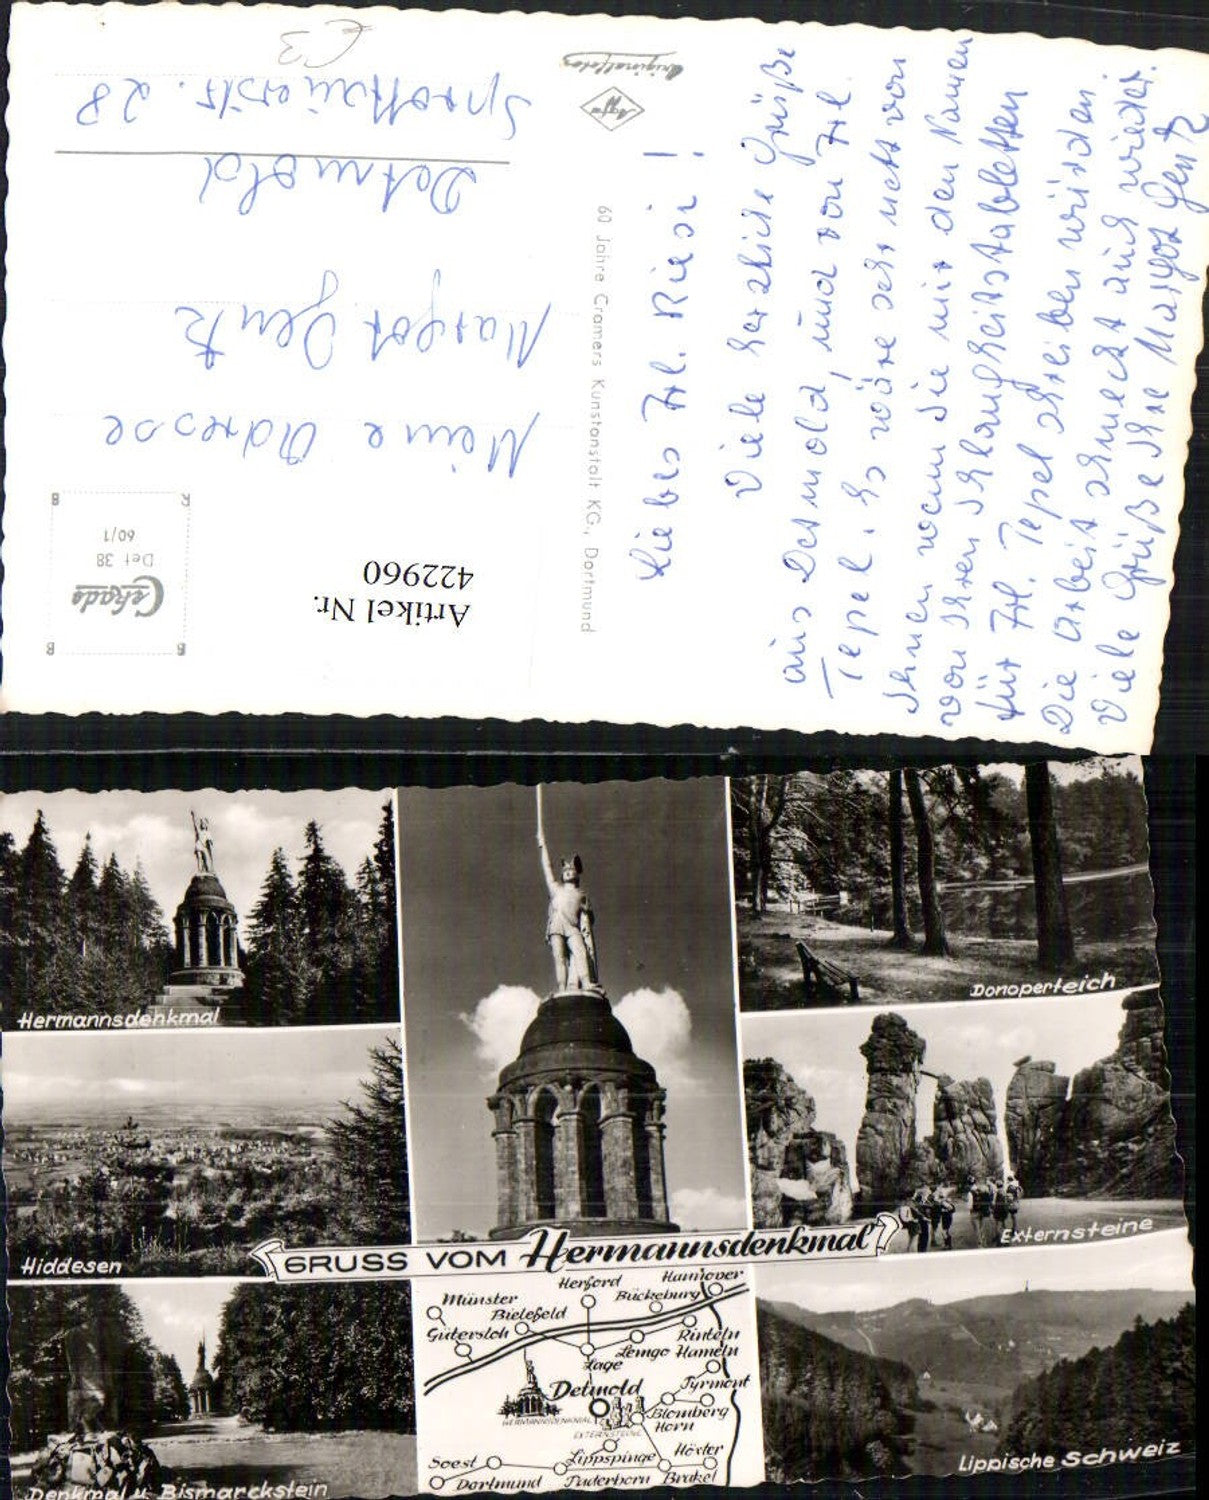 £3
Agfa
Originalfotos
60 Jahre Cramers Kunstanstalt KG., Dortmund
Cekade
Det 38
60/1
Artikel Nr.
422960
Meine Adresse
Margot Gentz
Detmold
Sprottauerstr. 28
Liebes Frl. Riesi!
Viele herzliche Grüße
aus Detmold, und von Frl.
Tepel. Es wäre sehr nett von
Ihnen wenn Sie mir den Namen
von Ihren Schlangheitstabletten
für Frl. Tepel schreiben würden.
Die Arbeit schmeckt auch wieder.
Viele Grüße Ihre Margot Gentz
Hermannsdenkmal
Donoperteich
Hiddesen
Externsteine
GRUSS VOM Hermannsdenkmal
Denkmal u. Bismarckstein
Lippische Schweiz
Herford
Hannover
Münster
Bückeburg
Bielefeld
Gütersloh
Rinteln
Lemgo
Hameln
Lage
Detmold
Pyrmont
HERMANNSDENKMAL
Blomberg
EXTERNSTEINE
Horn
Soest
Lippspringe
Höxter
Dortmund
Paderborn
Brakel